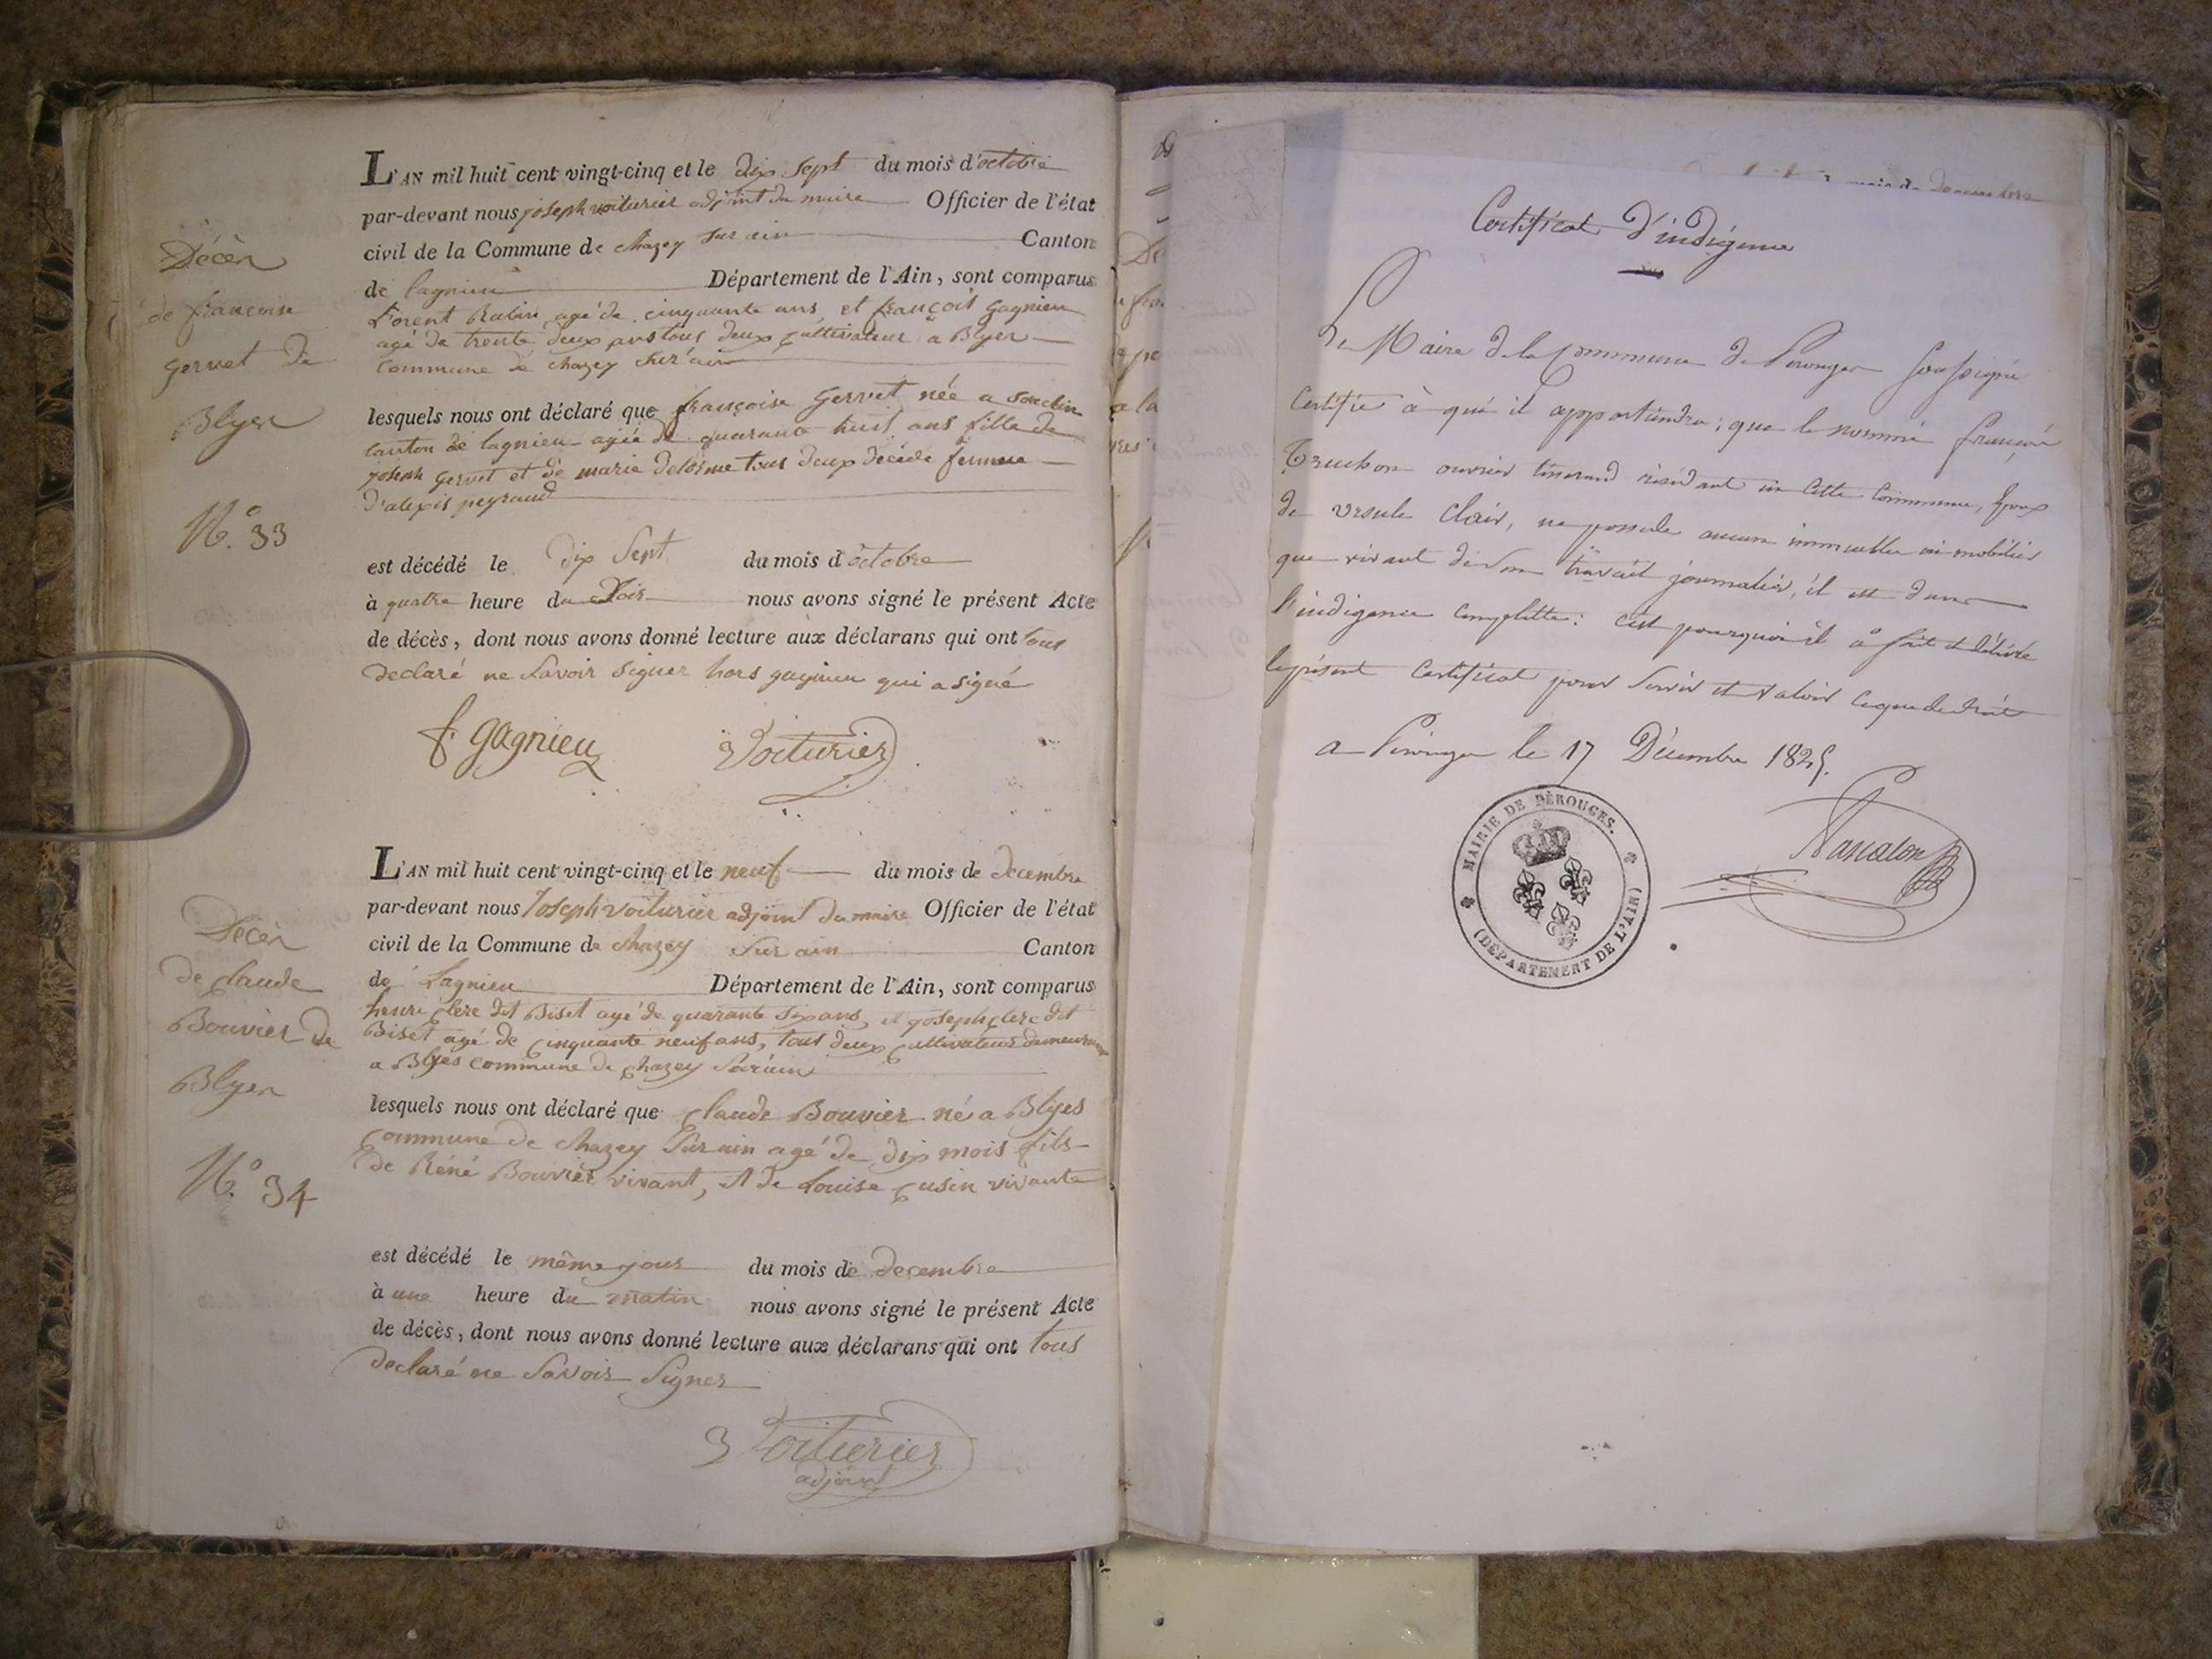 L'AN mil huit cent vingt-cinq et le dix sept du mois d'octobre
par-devant nous joseph voiturier adjoint du maire Officier de l'état
civil de la Commune de chazey sur ain Canton
de lagnieu Département de l'Ain, sont comparus
agé de cinquante ans et françois gagnieu
agé de trente deux ans tous deux cultivateur a Blyes
commune de chazey sur ain
lesquels nous ont déclaré que françoise gervet née a
canton de lagnieu agée de quarante huit ans fille de
joseph gervet et de marie delorme tous deux décédé femme
d'alexis peyraud
est décédé le dix sept du mois d'octobre
à quatre heure du soir nous avons signé le présent Acte
de décès, dont nous avons donné lecture aux déclarans qui ont tous
declaré ne savoir signer hors gagnieu qui a signé
f. gagnieu Voiturier
Décès
de francoise
gervet de
Blyes
N.° 33
L'AN mil huit cent vingt-cinq et le neuf du mois de decembre
par-devant nous Joseph voiturier adjoint du maire Officier de l'état
civil de la Commune de chazey sur ain Canton
de Lagnieu Département de l'Ain, sont comparus
henri clerc dit Biset agé de quarante six ans, et joseph clerc dit
Biset agé de cinquante neuf ans, tous deux cultivateurs demeurant
a Blyes commune de chazey sur ain
lesquels nous ont déclaré que claude Bouvier né a Blyes
commune de chazey sur ain agé de dix mois fils
de Réné Bouvier vivant, et de Louise cusin vivante
est décédé le même jour du mois de decembre
à une heure du matin nous avons signé le présent Acte
de décès, dont nous avons donné lecture aux déclarans qui ont tous
declaré ne savoir signer
Voiturier
adjoint
Décès
de claude
Bouvier de
Blyes
N.° 34
mois de decembre
Certificat d'indigence
Le Maire de la commune de Perouges soussigné
Certifie à qui il appartiendra; que le nommé françois
Truchon ouvrier tisserand résidant en cette commune, Epoux
de ursule Clair, ne possede aucun immeuble ni mobilier
que vivant de son travail journalier, il est dans
l'indigence complette: c'est pourquoi il a fait et délivré
le présent certificat pour servir et valoir ce que de droit
a Pérouges le 17 Décembre 1825.
MAIRIE DE PÉROUGES.
(DÉPARTEMENT DE L'AIN)